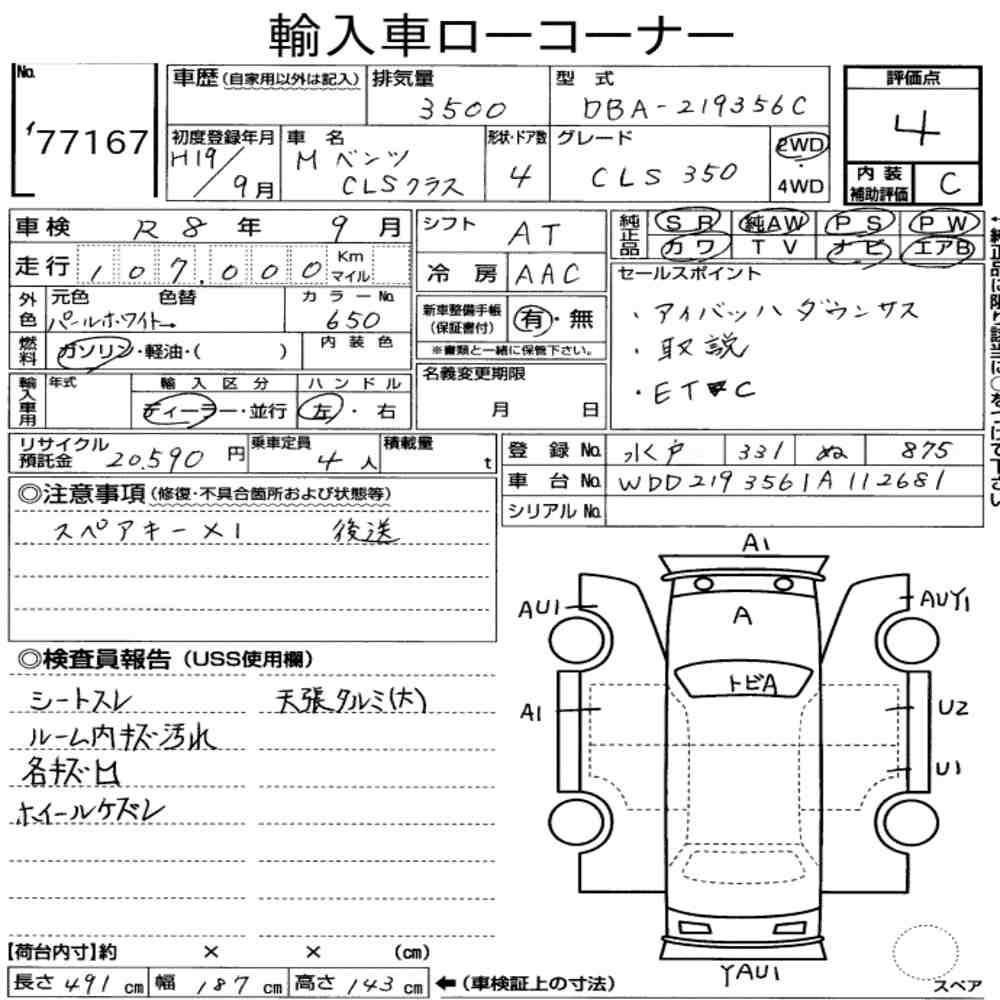 輸入車ローコーナー
No.
77167
車歴(自家用以外は記入)
排気量
3500
型式
DBA-219356C
評価点
4
内装補助評価
C
初度登録年月
H19/9月
車名
Mベンツ
CLSクラス
形状・ドア数
4
グレード
CLS 350
2WD
・
4WD
車検 R8年 9月
シフト
AT
純正品
SR 純AW PS PW
カワ TV ナビ エアB
走行 107,000 Km マイル
冷房 AAC
セールスポイント
・アイバッハダウンサス
・取説
・ETC
外色
元色 色替
パールホワイト→
カラーNo.
650
新車整備手帳
(保証書付)
有・無
※書類と一緒に保管下さい。
燃料
ガソリン・軽油・( )
内装色
輸入車用
年式
輸入区分
ディーラー・並行
ハンドル
左・右
名義変更期限
月 日
リサイクル預託金 20,590円
乗車定員 4人
積載量 t
登録No. 水戸 331 ぬ 875
車台No. WDD2193561A112681
シリアルNo.
◎注意事項(修復・不具合箇所および状態等)
スペアキー×1 後送
◎検査員報告(USS使用欄)
シートスレ 天張タルミ(大)
ルーム内キズ汚れ
各キズ凹
ホイールケズレ
A1
AU1
AUY1
A
トビA
A1
U2
U1
YAU1
スペア
【荷台内寸】約 × × (cm)
長さ491cm 幅187cm 高さ143cm ←(車検証上の寸法)